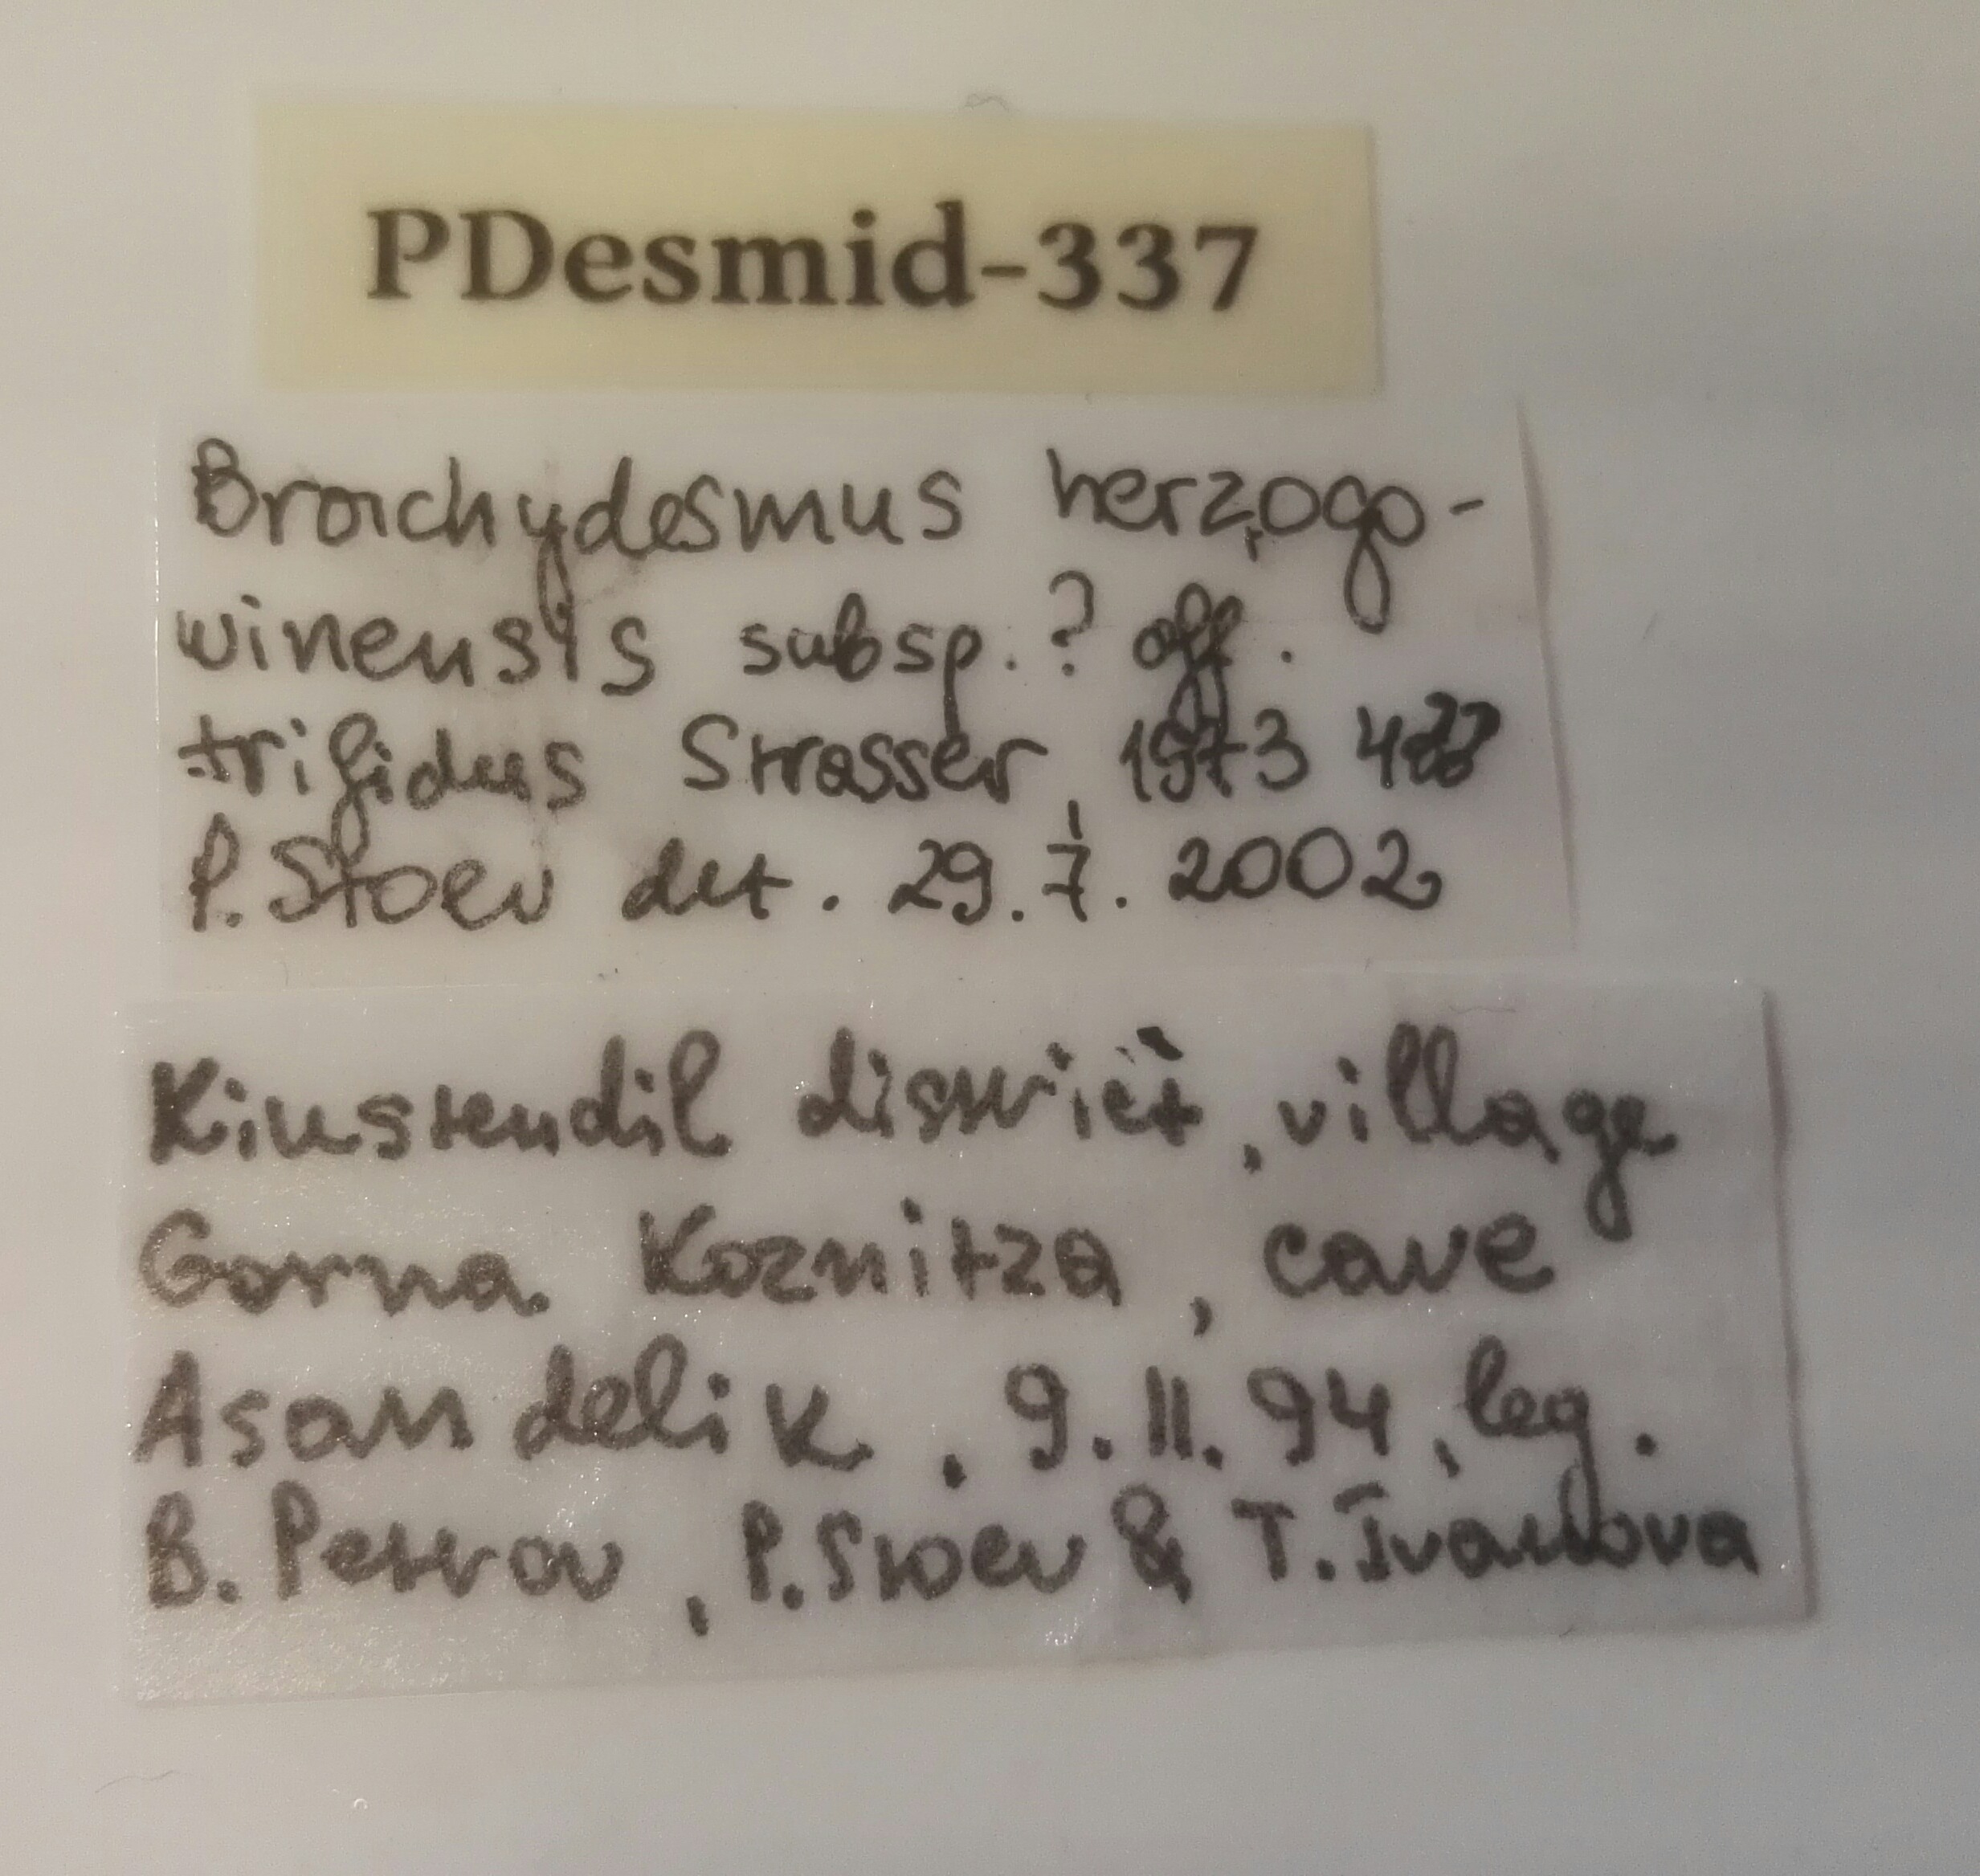 PDesmid-337
Brachydesmus herzogo-
winensis subsp.? aff.
trifidus Strasser, 1973
P. Stoev det. 29.7.2002
Kiustendil district, village
Gorna Koznitza, cave
Asan delik, 9.II.94, leg.
B. Petrov, P. Stoev & T. Ivanova